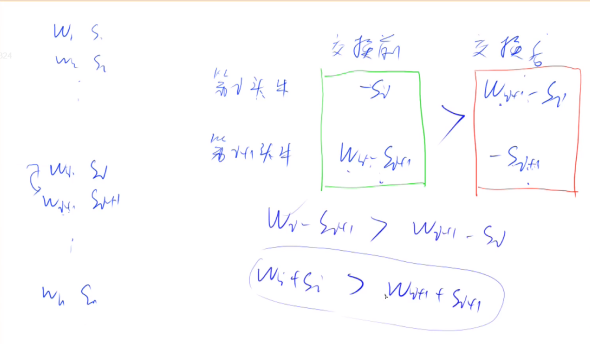 W₁ S₁
W₂ S₂
⋮
Wᵢ Sᵢ
Wᵢ₊₁ Sᵢ₊₁
⋮
Wₙ Sₙ
交换前 交换后
第i头牛 -Sᵢ > Wᵢ₊₁ - Sᵢ
第i+1头牛 Wᵢ - Sᵢ₊₁ -Sᵢ₊₁
Wᵢ - Sᵢ₊₁ > Wᵢ₊₁ - Sᵢ
Wᵢ + Sᵢ > Wᵢ₊₁ + Sᵢ₊₁